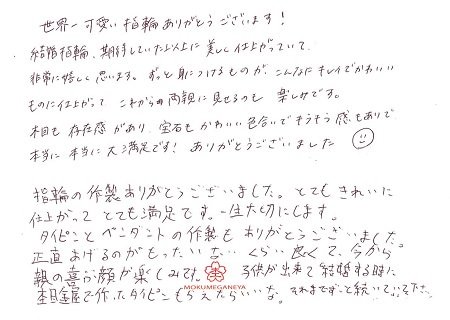 世界一可愛い指輪ありがとうございます!
結婚指輪、期待していた以上に美しく仕上がっていて、
非常に嬉しく思います。ずっと身につけるものが、こんなにキレイでかわいい
ものに仕上がって これからの両親に見せるのも 楽しみです。
木目も存在感があり、宝石もかわいい色合いでそうそう感もありで
本当に 本当に 大満足です! ありがとうございました
指輪の作製ありがとうございました。とてもきれいに
仕上がって とても満足です。一生大切にします。
タイピンとペンダントの作製も ありがとうございました。
正直あげるのがもったいない くらい 良くて、今から
親の喜ぶ顔が楽しみです。 子供が出来て結婚する時に
MOKUMEGANEYA
杢目金屋で作ったタイピンもらえたらいいな。それまでずっと続いて下さい